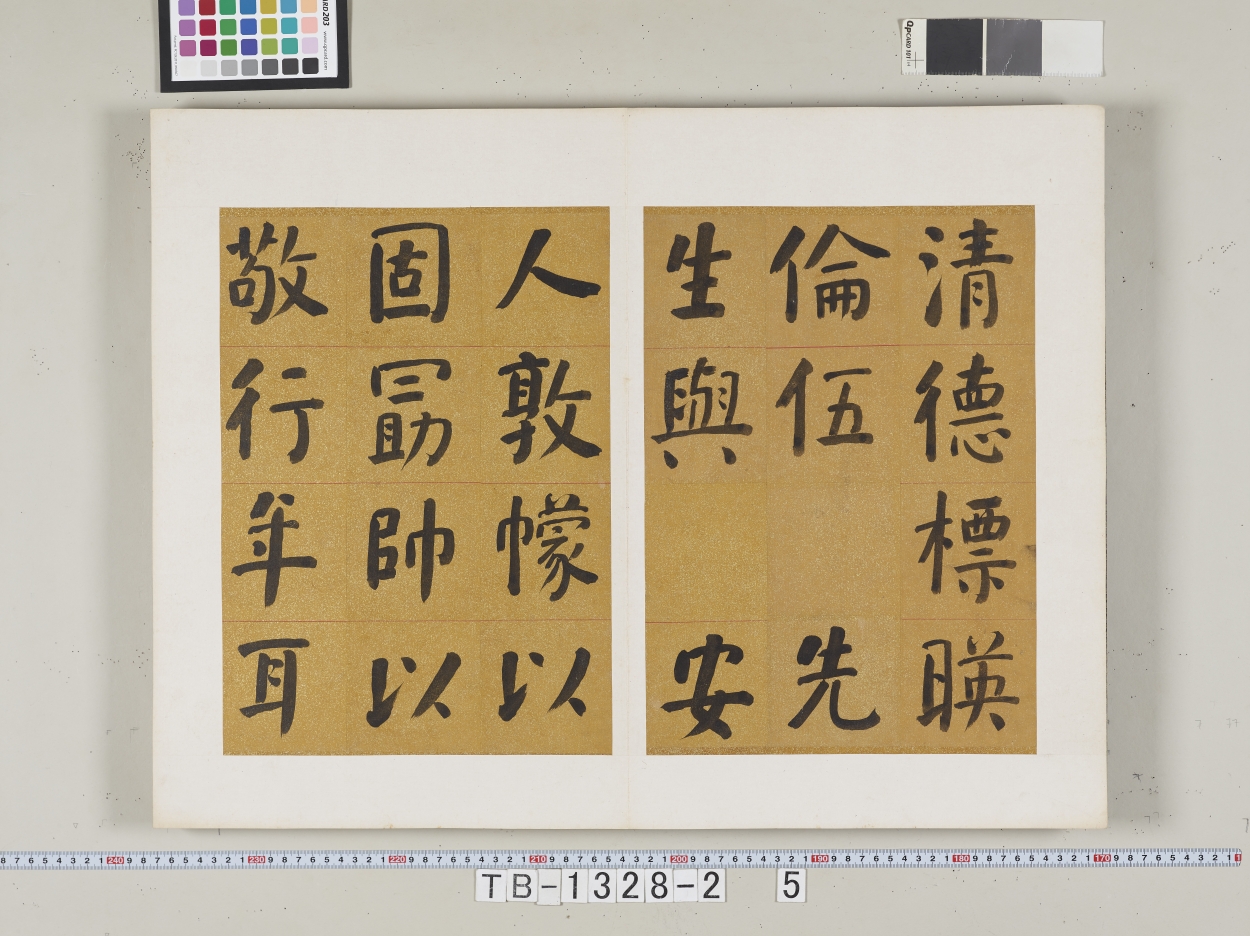 清德標暎
倫伍先
生與安
人敦幪以
固勗帥以
敬行年耳
TB-1328-2 5